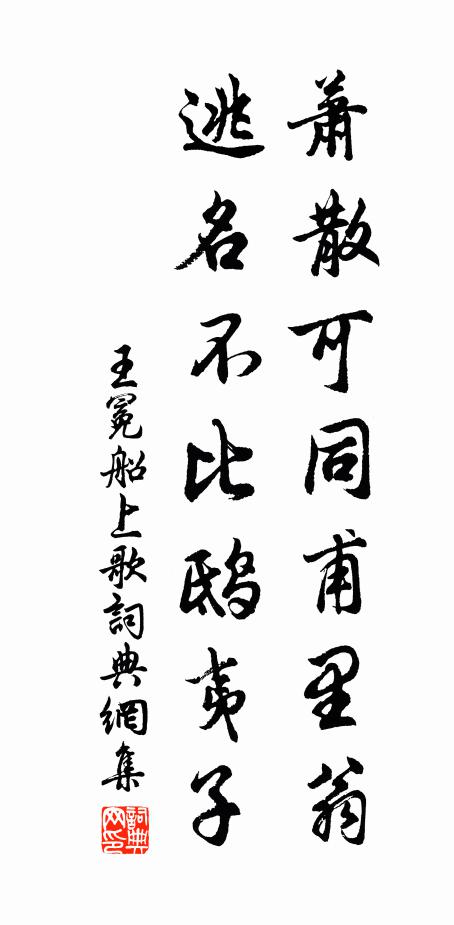 蕭散可同甫里翁
逃名不比鴟夷子
王冕船上歌詞典網集
詞典
网印